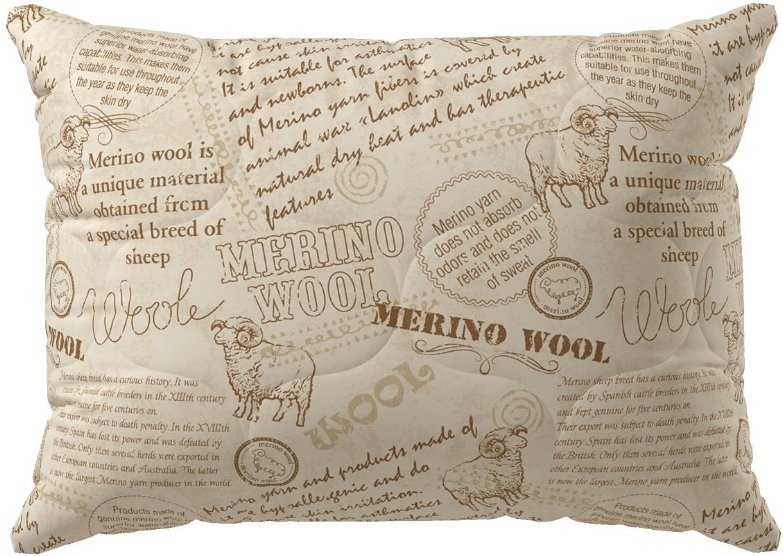 genuine merino wool have
superior water-absorbing
capabilities. This makes them
suitable for use throughout
the year as they keep the
skin dry
not cause skin irritation.
It is suitable for asthmatics
and newborns. The surface
of Merino yarn fibers is covered by
animal wax «Lanolin» which create
natural dry heat and has therapeutic
features
Merino yarn
it are hyp
not cause
It is
and
of
genuine merino wool have
superior water-absorbing
capabilities. This makes them
suitable for use throughout
the year as they keep the
skin dry
Merino wool is
a unique material
obtained from
a special breed of
sheep
Merino wool
a unique material
obtained from
a special breed of
sheep
MERINO
WOOL
Merino yarn
does not absorb
odors and does not
retain the smell
of sweat
merino wool
merino wool
Woole
Woole
WOOL
MERINO WOOL
WOOL
Merino sheep breed has a curious history. It was
created by Spanish cattle breeders in the XIIIth century
and kept genuine for five centuries on.
Their export was subject to death penalty. In the XVIIIth
century Spain has lost its power and was defeated by
the British. Only then several herds were exported in
other European countries and Australia. The latter
is now the largest Merino yarn producer in the world.
merino wool
merino wool
Merino yarn and products made of
it are hypoallergenic and do
not cause skin irritation.
Merino sheep breed has a curious history. It was
created by Spanish cattle breeders in the XIIIth century
and kept genuine for five centuries on.
Their export was subject to death penalty. In the XVIIIth
century Spain has lost its power and was defeated by
the British. Only then several herds were exported in
other European countries and Australia. The latter
is now the largest Merino yarn producer in the world.
Products made of
genuine merino wool have
superior water-absorbing
Products made of
genuine merino wool have
Merino
it are
not